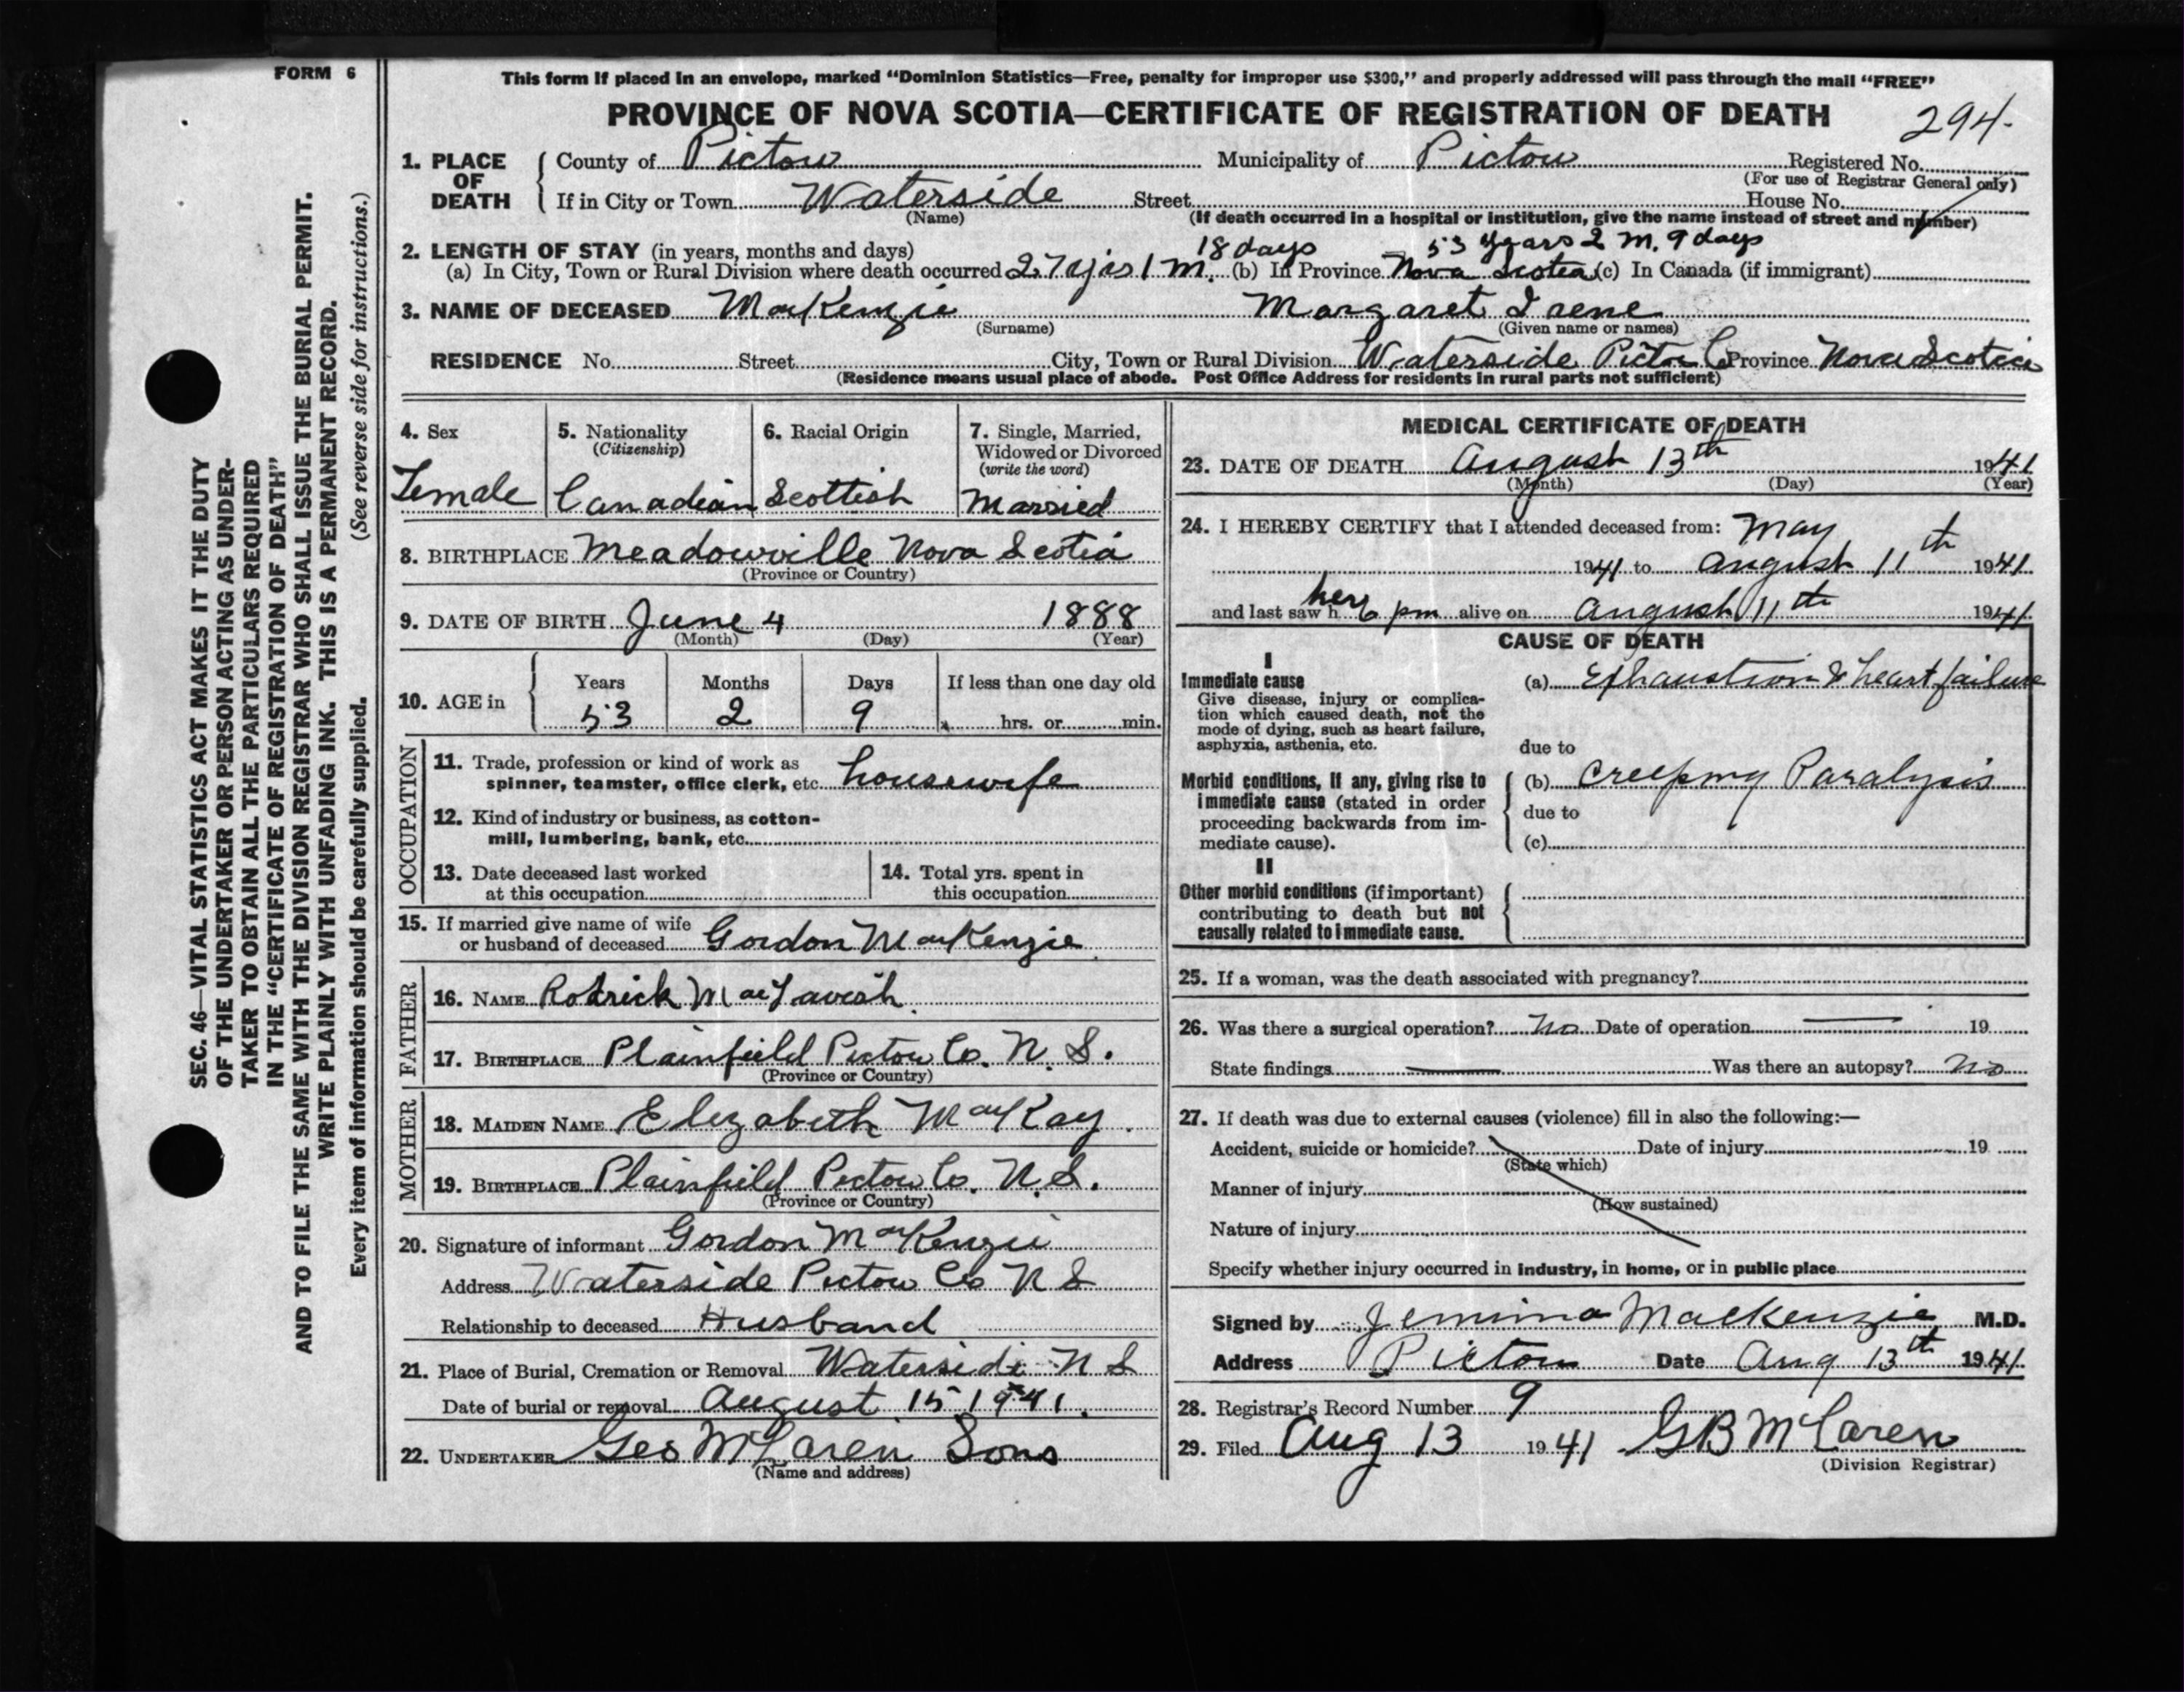 FORM 6
This form if placed in an envelope, marked “Dominion Statistics—Free, penalty for improper use $300,” and properly addressed will pass through the mail “FREE”
PROVINCE OF NOVA SCOTIA—CERTIFICATE OF REGISTRATION OF DEATH
294.
1. PLACE OF DEATH County of Pictou Municipality of Pictou Registered No.
(For use of Registrar General only)
If in City or Town Waterside Street House No.
(Name) (If death occurred in a hospital or institution, give the name instead of street and number)
2. LENGTH OF STAY (in years, months and days) 18 days 53 years 2 m. 9 days
(a) In City, Town or Rural Division where death occurred 27 yrs 1 m. (b) In Province Nova Scotia (c) In Canada (if immigrant)
3. NAME OF DECEASED MacKenzie Margaret Irene
(Surname) (Given name or names)
RESIDENCE No. Street City, Town or Rural Division Waterside Pictou Co Province Nova Scotia
(Residence means usual place of abode. Post Office Address for residents in rural parts not sufficient)
4. Sex 5. Nationality (Citizenship) 6. Racial Origin 7. Single, Married, Widowed or Divorced (write the word)
Female Canadian Scottish Married
8. BIRTHPLACE Meadowville Nova Scotia
(Province or Country)
9. DATE OF BIRTH June 4 1888
(Month) (Day) (Year)
10. AGE in Years Months Days If less than one day old
53 2 9 hrs. or min.
OCCUPATION
11. Trade, profession or kind of work as
spinner, teamster, office clerk, etc. housewife
12. Kind of industry or business, as cotton-
mill, lumbering, bank, etc.
13. Date deceased last worked
at this occupation
14. Total yrs. spent in
this occupation
15. If married give name of wife
or husband of deceased Gordon MacKenzie
FATHER
16. NAME Rodrick MacTavish
17. BIRTHPLACE Plainfield Pictou Co. N.S.
(Province or Country)
MOTHER
18. MAIDEN NAME Elizabeth MacKay.
19. BIRTHPLACE Plainfield Pictou Co. N.S.
(Province or Country)
20. Signature of informant Gordon MacKenzie
Address Waterside Pictou Co N S
Relationship to deceased Husband
21. Place of Burial, Cremation or Removal Waterside N S
Date of burial or removal August 15 1941.
22. UNDERTAKER Geo McLaren Sons
(Name and address)
MEDICAL CERTIFICATE OF DEATH
23. DATE OF DEATH August 13th 1941
(Month) (Day) (Year)
24. I HEREBY CERTIFY that I attended deceased from: May
1941 to August 11th 1941
and last saw her 6 pm alive on August 11th 1941
CAUSE OF DEATH
I
Immediate cause
Give disease, injury or complica-
tion which caused death, not the
mode of dying, such as heart failure,
asphyxia, asthenia, etc.
(a) Exhaustion & heart failure
due to
Morbid conditions, if any, giving rise to
immediate cause (stated in order
proceeding backwards from im-
mediate cause).
(b) Creeping Paralysis
due to
(c)
II
Other morbid conditions (if important)
contributing to death but not
causally related to immediate cause.
25. If a woman, was the death associated with pregnancy?
26. Was there a surgical operation? No Date of operation 19
State findings Was there an autopsy? No
27. If death was due to external causes (violence) fill in also the following:—
Accident, suicide or homicide? Date of injury 19
(State which)
Manner of injury
(How sustained)
Nature of injury
Specify whether injury occurred in industry, in home, or in public place
Signed by Jemima MacKenzie M.D.
Address Pictou Date Aug 13th 1941
28. Registrar's Record Number 9
29. Filed Aug 13 1941 GB McLaren
(Division Registrar)
SEC. 46—VITAL STATISTICS ACT MAKES IT THE DUTY
OF THE UNDERTAKER OR PERSON ACTING AS UNDER-
TAKER TO OBTAIN ALL THE PARTICULARS REQUIRED
IN THE “CERTIFICATE OF REGISTRATION OF DEATH”
AND TO FILE THE SAME WITH THE DIVISION REGISTRAR WHO SHALL ISSUE THE BURIAL PERMIT.
WRITE PLAINLY WITH UNFADING INK. THIS IS A PERMANENT RECORD.
Every item of information should be carefully supplied. (See reverse side for instructions.)